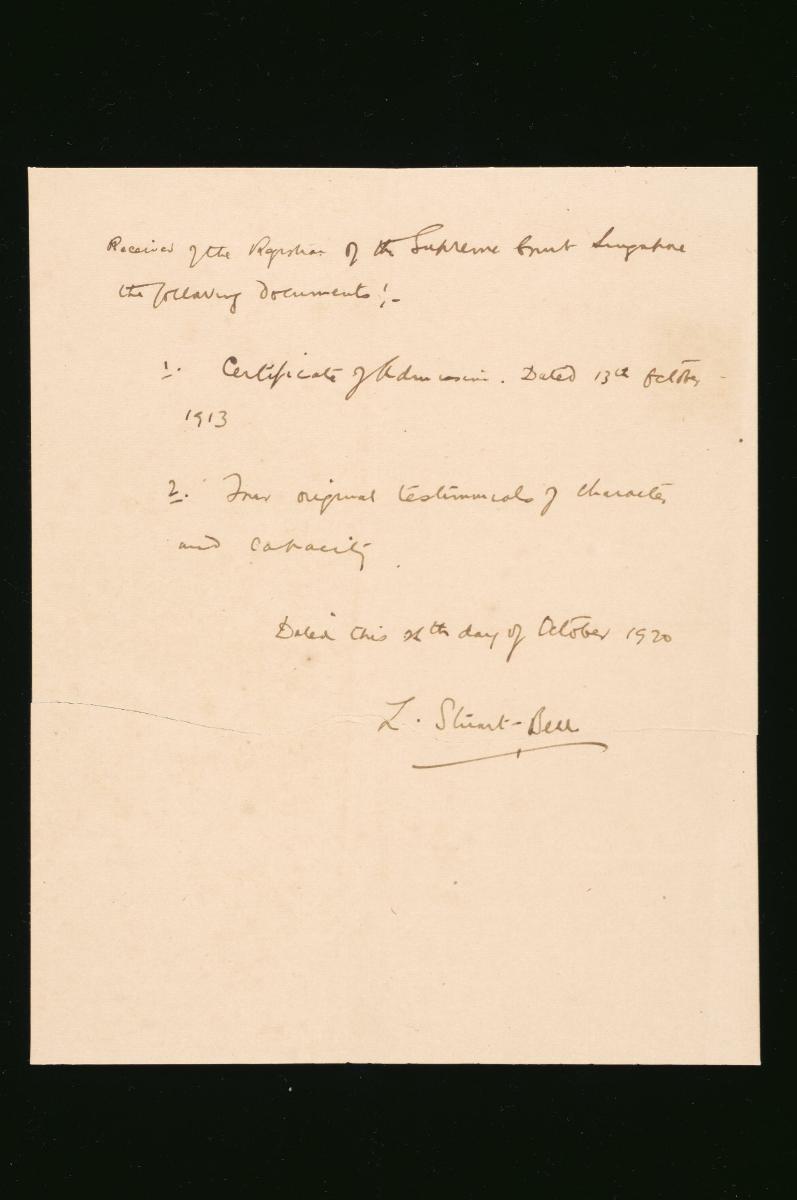 Received of the Registrar of the Supreme Court Singapore
the following Documents:-
1. Certificate of Admission. Dated 13th October
1913
2. Four original testimonials of character
and capacity.
Dated this day of October 1920
L. Stuart-Bell